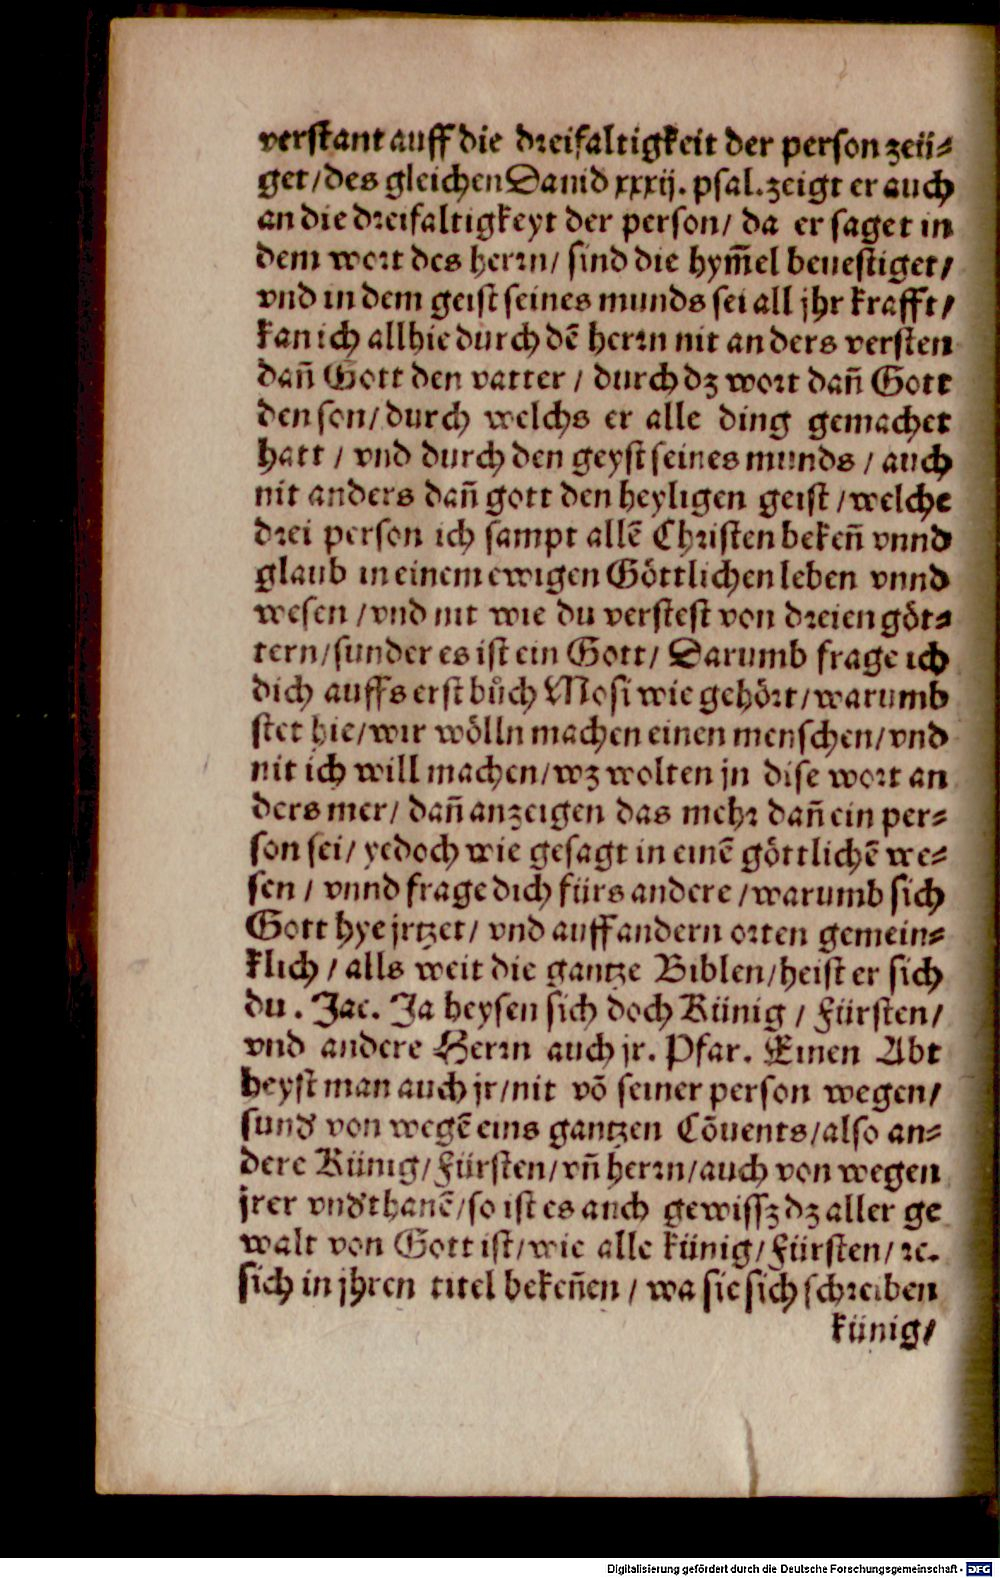 verstant auff die dreifaltigkeit der person zeü⸗
get/des gleichen Dauid xxxij. psal. zeigt er auch
an die dreifaltigkeyt der person/ da er saget in
dem wort des herrn/ sind die hym̃el beuestiget/
vnd in dem geist seines munds sei all jhr krafft/
kan ich allhie durch dē herrn nit anders versten
dañ Gott den vatter / durch dz wort dañ Gott
den son/ durch welchs er alle ding gemachet
hatt / vnd durch den geyst seines munds / auch
nit anders dañ gott den heyligen geist / welche
drei person ich sampt allē Christen bekeñ vnnd
glaub in einem ewigen Göttlichen leben vnnd
wesen / vnd nit wie du verstest von dreien göt⸗
tern/ sunder es ist ein Gott/ Darumb frage ich
dich auffs erst bůch Mosi wie gehört/ warumb
stet hie/ wir wölln machen einen menschen/ vnd
nit ich will machen/ wz wolten jn dise wort an
ders mer/ dañ anzeigen das mehr dañ ein per⸗
son sei/ yedoch wie gesagt in einē göttlichē we⸗
sen / vnnd frage dich fürs andere / warumb sich
Gott hye jrtzet/ vnd auff andern orten gemein⸗
klich / alls weit die gantze Biblen/ heist er sich
du . Jac. Ja heysen sich doch Künig / Fürsten/
vnd andere Herrn auch jr. Pfar. Einen Abt
heyst man auch jr/ nit vō seiner person wegen/
sunđ von wegē eins gantzen Cōuents/ also an⸗
dere Künig/ Fürsten/ vñ herrn/ auch von wegen
jrer vnđthanē/ so ist es auch gewissz dz aller ge
walt von Gott ist/ wie alle künig/ Fürsten/ ꝛc.
sich in jhren titel bekeñen / wa sie sich schreiben
künig/
Digitalisierung gefördert durch die Deutsche Forschungsgemeinschaft - DFG